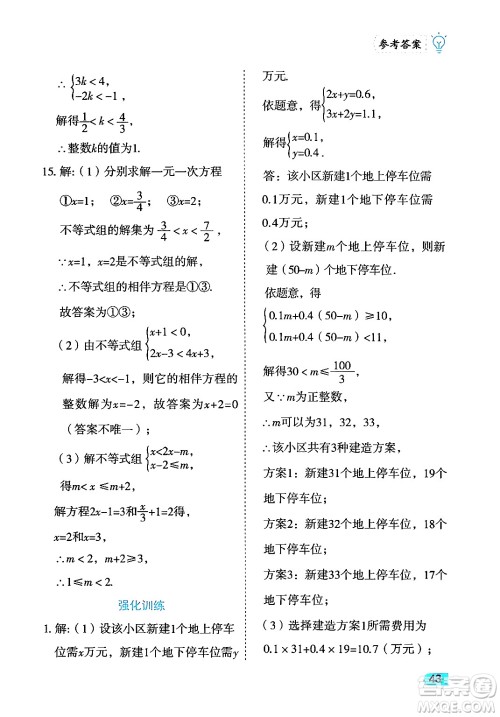 参考答案
∴ {3k＜4，
-2k＜-1，
解得1/2＜k≤4/3，
∴整数k的值为1.
15. 解：（1）分别求解一元一次方程
①x=1； ②x=3/4； ③x=2.
不等式组的解集为3/4＜x＜7/2，
∵x=1，x=2是不等式组的解，
∴不等式组的相伴方程是①③.
故答案为①③；
（2）由不等式组{x+1＜0，
2x-3＜4x，
解得-3<x<-1，则它的相伴方程的
整数解为-2，故答案为x+2=0
（答案不唯一）；
（3）解不等式组{x<2x-m，
x-2≤m，
得m<x≤m+2，
解方程2x-1=3和x/3+1=2得，
x=2和x=3，
∴m<2，m+2≥3，
∴1≤m<2.
强化训练
1. 解：（1）设该小区新建1个地上停车
位需x万元，新建1个地下停车位需y
万元.
依题意，得{2x+y=0.6，
3x+2y=1.1，
解得{x=0.1，
y=0.4.
答：该小区新建1个地上停车位需
0.1万元，新建1个地下停车位需
0.4万元；
（2）设新建m个地上停车位，则新
建（50-m）个地下停车位.
依题意，得
{0.1m+0.4（50-m）≥10，
0.1m+0.4（50-m）<11，
解得30＜m≤100/3，
又∵m为正整数，
∴该小区共有3种建造方案：
方案1：新建31个地上停车位，19个
地下停车位；
方案2：新建32个地上停车位，18个
地下停车位；
方案3：新建33个地上停车位，17个
地下停车位；
（3）选择建造方案1所需费用为
0.1×31+0.4×19=10.7（万元）；
43